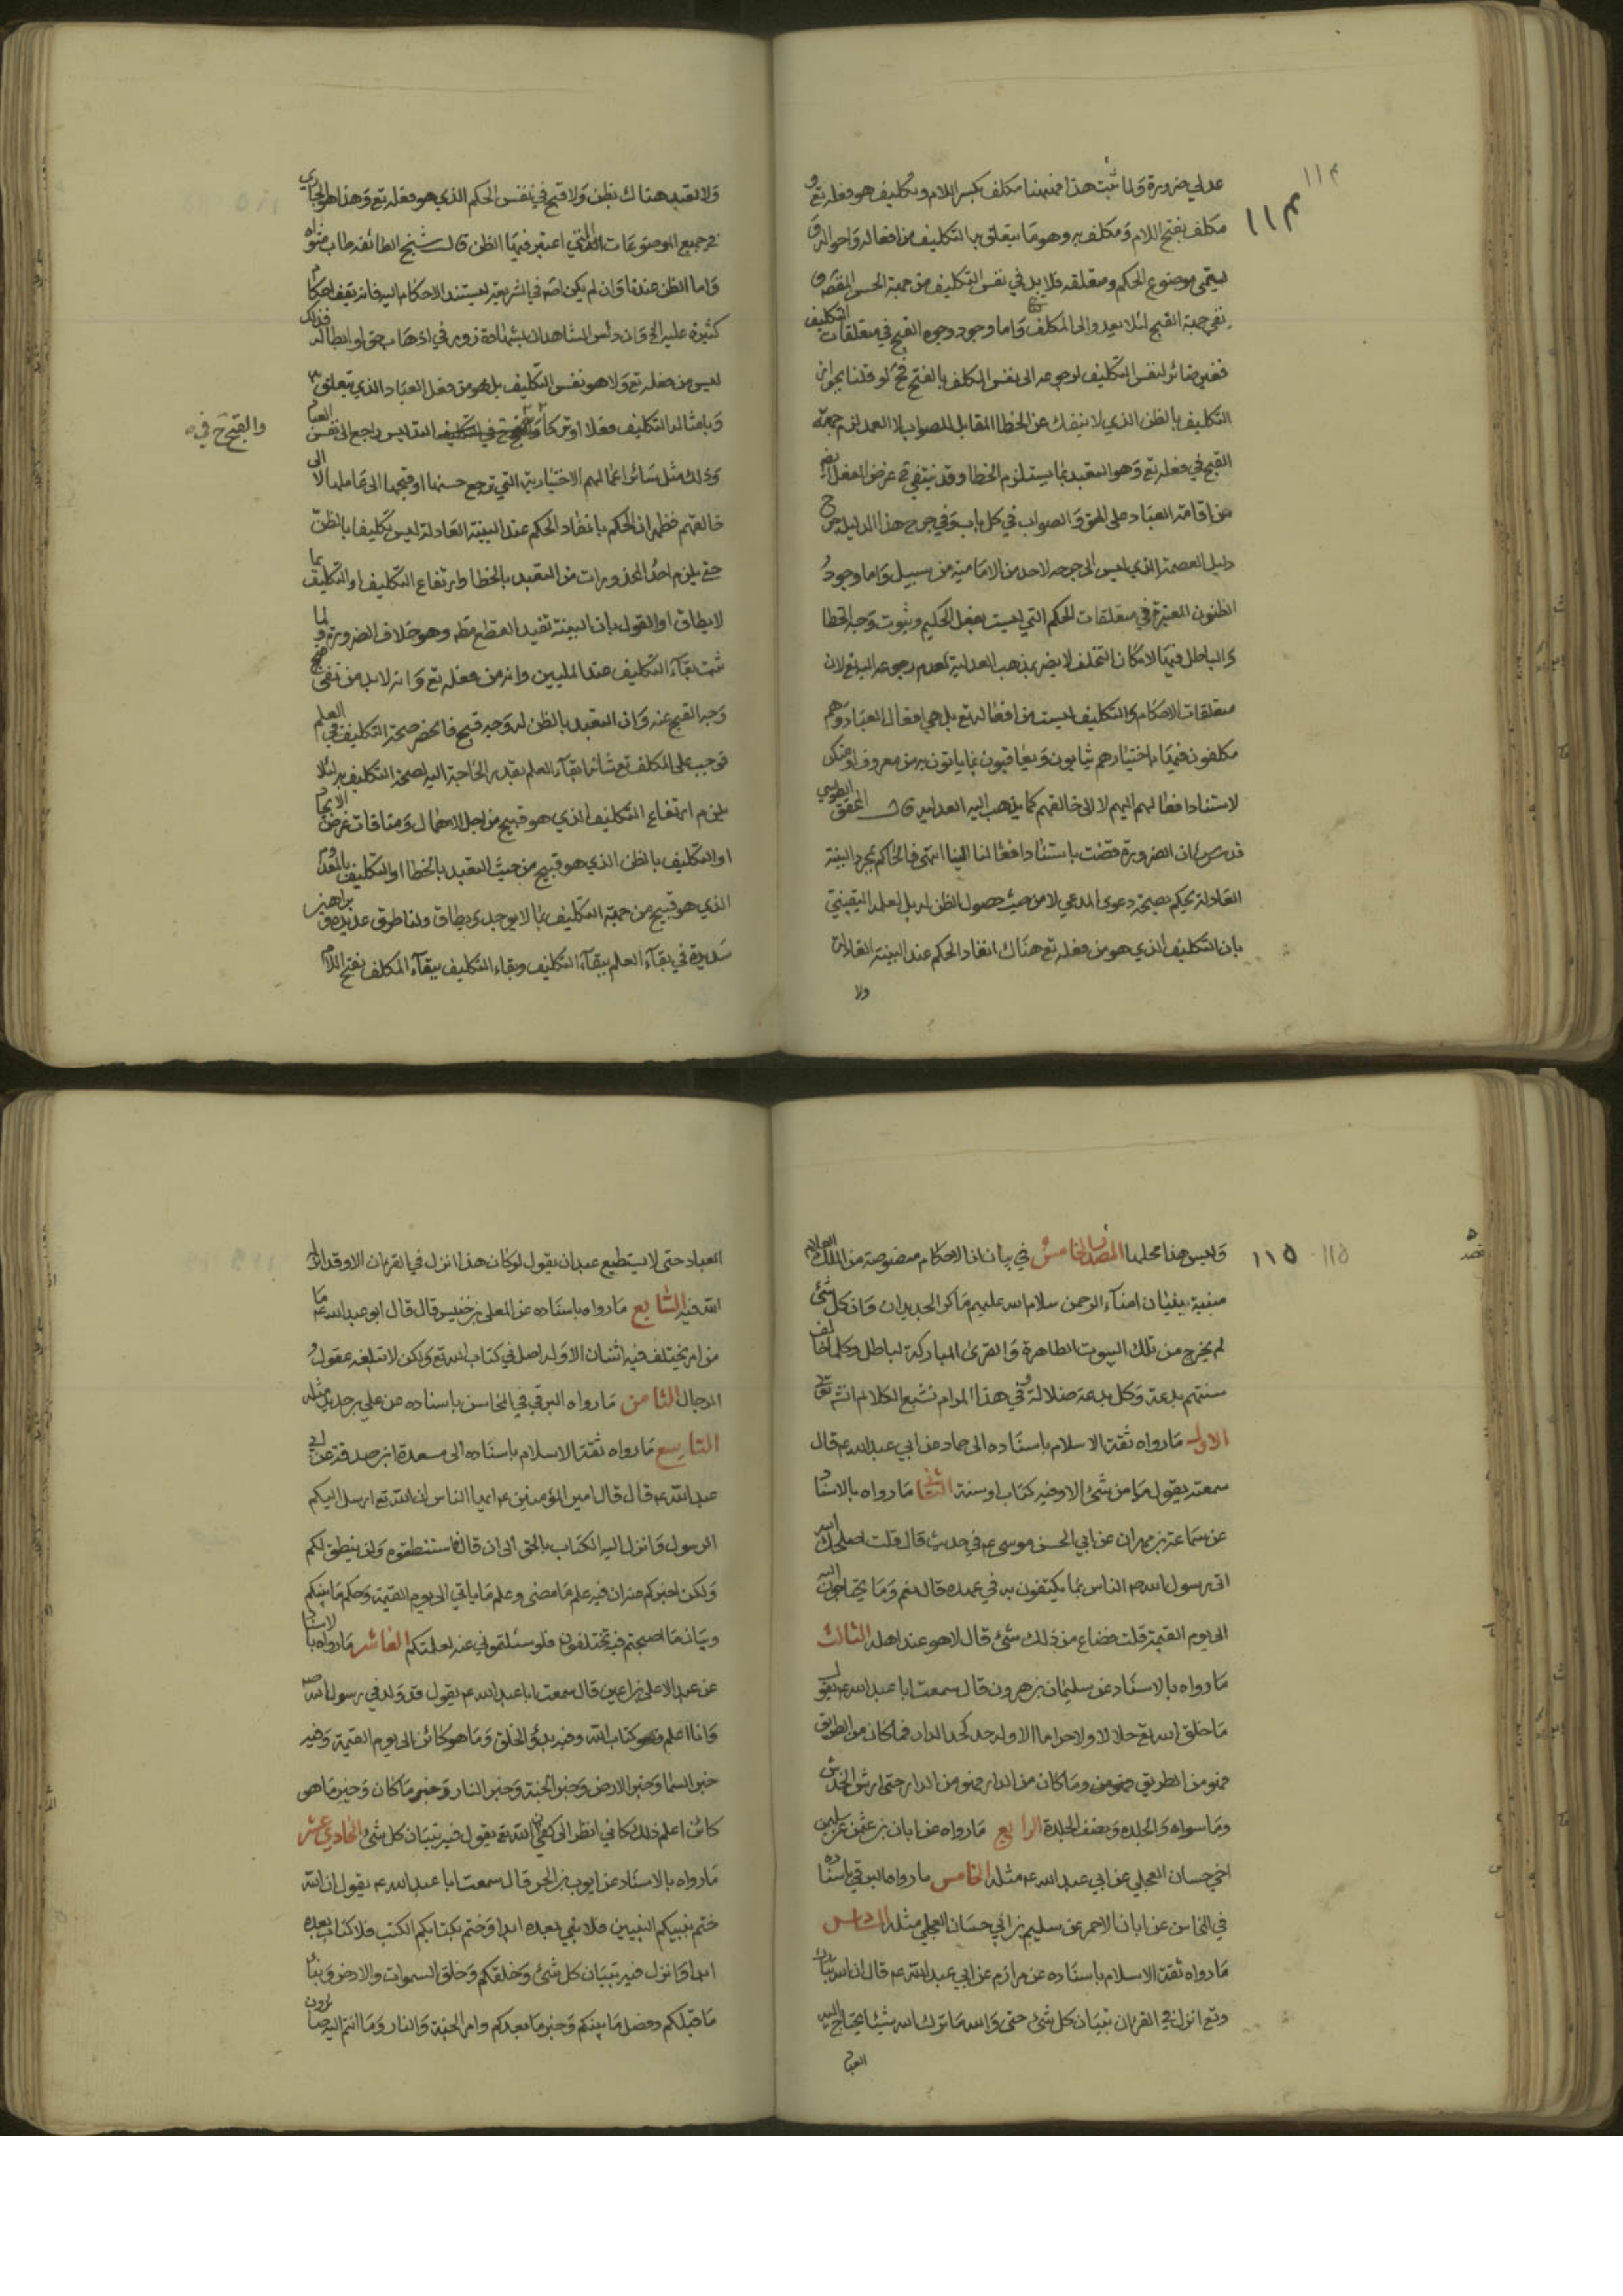 ١١٤
عدلي ضرورة ولما ثبت هذا فهيهنا مكلف بكسر اللام وتكليف هو فعله تع و
مكلف بفتح اللام ومكلف به وهو ما يتعلق به التكليف من افعاله واحواله وقد
يسمى موضوع الحكم ومتعلقه فلا بد في نفس التكليف من جهة الحسن المقتضي و
نفي جهة القبح لئلا يعود الى المكلف واما وجود وجوه القبح في متعلقات التكليف
فغير ضائر لنفس التكليف لرجوعه الى نفس المكلف بالفتح فح لو قلنا بجواز
التكليف بالظن الذي لا ينفك عن الخطا المقابل للصواب لا العمد لزم جهة
القبح في فعله تع وهو التعبد بما يستلزم الخطا وقد ينتفي ح غرض الفعل ايضا
من اقامة العباد على الحق والصواب في كل باب وفي جرح هذا الدليل جرح
دليل العصمة الذي ليس الى جرحه لاحد من الامامية من سبيل واما وجود
الظنون المعتبرة في متعلقات الحكم التي ليست بفعل الحكيم وثبوت وجه الخطا
والباطل فيها لامكان التخلف لا يضر بمذهب العدلية لعدم رجوعه اليه تع لان
متعلقات الاحكام والتكليف ليست من افعاله تع بل هي افعال العباد وهم
مكلفون فيها باختيارهم يثابون ويعاقبون بما ياتون به من معروف او منكر
لاستناد افعالهم اليهم لا الى خالقهم كما يذهب اليه العدليه قال المحقق الطوسي
قدس سره ان الضرورة قضت باستناد افعالنا الينا انتهى فالحاكم بمجرد البينة
العادلة يحكم بصحة دعوى المدعي لا من حيث حصول الظن له بل لعلمه اليقيني
بان التكليف الذي هو من فعله تع هناك انفاذ الحكم عند البينة العادلة
ولا
ولا تعبد هناك بظن ولا قبح في نفس الحكم الذي هو فعله تع وهذا هو الجاري
في جميع الموضوعات التي اعتبر فيها الظن قال شيخ الطائفه طاب مثواه
واما الظن عندنا وان لم يكن اصلا في الشريعة يستند الاحكام اليه فانه تقف احكام
كثيرة عليه الخ وان دلس الشاهدان بشهادة زور في اذهاب حق او ابطاله فذلك
ليس من فعله تع ولا هو نفس التكليف بل هو من فعل العباد الذي يتعلق به
وبامثاله التكليف فعلا او تركا التدليس راجع الى نفس العباد
والقبح ح في
وذلك مثل سائر اعمالهم الاختيارية التي يرجع حسنها او قبحها الى عاملها لا الى
خالقهم فظهر ان الحكم بانفاذ الحكم عند البينة العادلة ليس تكليفا بالظن
حتى يلزم احد المحذورات من التعبد بالخطا وارتفاع التكليف او التكليف بما
لا يطاق او القول بان البينة تفيد القطع مطه وهو خلاف الضرورة ولما
ثبت بقاء التكليف عند المليين وانه من فعله تع وانه لا بد من نفي
وجه القبح عنه وان التعبد بالظن له وجه قبح فانحصر صحة التكليف في العلم
فوجب على المكلف تع شانه ابقاء العلم بقدر الحاجة اليه لصحة التكليف به لئلا
يلزم ارتفاع التكليف الذي هو قبيح من اجل الاهمال ومنافات غرض الايجاد
او التكليف بالظن الذي هو قبيح من حيث التعبد بالخطا او التكليف بالمعدوم
الذي هو قبيح من جهة التكليف بما لا يوجد ولا يطاق ولنا طرق عديدة وبراهين
سديدة في بقاء العلم ببقاء التكليف وبقاء التكليف ببقاء المكلف بفتح اللام
١١٥
وليس هذا محلها المصد الخامس في بيان ان الاحكام منصوصة من الملك العلام
مبينة ببيان امناء الرحمن سلام الله عليهم ما كر الجديدان وان كل شئ
لم يخرج من تلك البيوت الطاهرة والقرى المباركة لباطل وكلما خالف
سنتهم بدعة وكل بدعة ضلالة وفي هذا المرام نشبع الكلام انش تع
الاول ما رواه ثقة الاسلام باسناده الى حماد عن ابي عبد الله ع قال
سمعته يقول ما من شئ الا وفيه كتاب او سنة الثاني ما رواه بالاسناد
عن سماعة بن مهران عن ابي الحسن موسى ع في حديث قال قلت اصلحك الله
اتى رسول الله ص الناس بما يكتفون به في عهده قال نعم وما يحتاجون اليه
الى يوم القيمة قلت فضاع من ذلك شئ قال لا هو عند اهله الثالث
ما رواه بالاسناد عن سليمان بن هرون قال سمعت ابا عبد الله ع يقول
ما خلق الله تع حلالا ولا حراما الا وله حد كحد الدار فما كان من الطريق
فهو من الطريق وما كان من الدار فهو من الدار حتى ارش الخدش
وما سواه والجلدة ونصف الجلدة الرابع ما رواه عن ابان بن عثمن عن سليمن
اخي حسان العجلي عن ابي عبد الله ع مثله الخامس ما رواه البرقي باسناده
في المحاسن عن ابان الاحمر عن سليم بن ابي حسان العجلي مثله السادس
ما رواه ثقة الاسلام باسناده عن مرازم عن ابي عبد الله ع قال ان الله تبارك
وتع انزل في القران تبيان كل شئ حتى والله ما ترك الله شيئا يحتاج اليه
العباد
العباد حتى لا يستطيع عبد ان يقول لو كان هذا انزل في القران الا وقد انزل
الله فيه السابع ما رواه باسناده عن المعلى بن خنيس قال قال ابو عبد الله ع ما
من امر يختلف فيه اثنان الا وله اصل في كتاب الله تع ولكن لا تبلغه عقول
الرجال الثامن ما رواه البرقي في المحاسن باسناده عن علي بن حديد مثله
التاسع ما رواه ثقة الاسلام باسناده الى مسعدة ابن صدقة عن ابي
عبد الله ع قال قال امير المؤمنين ع ايها الناس ان الله تع ارسل اليكم
الرسول وانزل اليه الكتاب بالحق الى ان قال فاستنطقوه ولن ينطق لكم
ولكن اخبركم عنه ان فيه علم ما مضى وعلم ما ياتي الى يوم القيمة وحكم ما بينكم
وبيان ما اصبحتم فيه تختلفون فلو سئلتموني عنه لعلمتكم العاشر ما رواه بالاسناد
عن عبد الاعلى بن اعين قال سمعت ابا عبد الله ع يقول قد ولدني رسول الله ص
وانا اعلم كتاب الله وفيه بدؤ الخلق وما هو كائن الى يوم القيمة وفيه
خبر السماء وخبر الارض وخبر الجنة وخبر النار وخبر ما كان وخبر ما هو
كائن اعلم ذلك كاني انظر الى كفي ان الله تع يقول فيه تبيان كل شئ الحادي عشر
ما رواه بالاسناد عن ايوب بن الحر قال سمعت ابا عبد الله ع يقول ان الله
ختم بنبيكم النبيين فلا نبي بعده ابدا وختم بكتابكم الكتب فلا كتاب بعده
ابدا وانزل فيه تبيان كل شئ وخلقكم وخلق السموات والارض ونبأ
ما قبلكم وفصل ما بينكم وخبر ما بعدكم وامر الجنة والنار وما انتم اليه صائرون